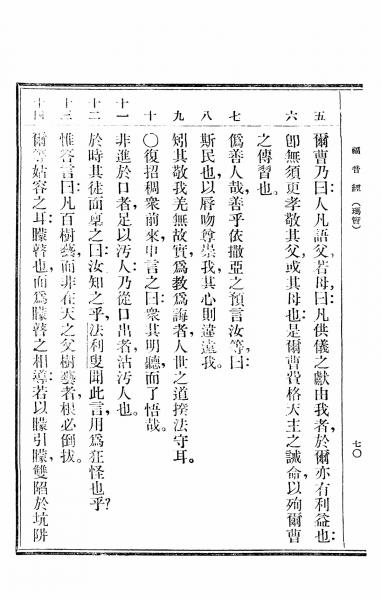 福音經 (瑪竇)
七〇
五 爾曹乃曰:人凡語父若母曰:凡供儀之獻由我者,於爾亦有利益也:
六 卽無須更孝敬其父,或其母也:是爾曹費格天主之誡命,以殉爾曹
之傳習也。
七 僞善人哉,善乎依撒亞之預言汝等,曰:
八 斯民也,以唇吻尊崇我,其心則違遠我。
九 矧其敬我羌無故實,爲教爲誨者,人世之道揆法守耳。
十 〇復招稠衆前來,申言之曰:衆其明聽,而了悟哉。
十一 非進於口者,足以汚人,乃從口出者,沾汚人也。
十二 於時其徒而稟之曰:汝知之乎,法利叟聞此言,用爲狂怪也乎?
十三 惟答言曰:凡百樹藝,而非在天之父樹藝者,根必倒拔。
十四 爾等姑容之耳:矇瞽也,而爲矇瞽之相導:若以矇引矇,雙陷於坑阱